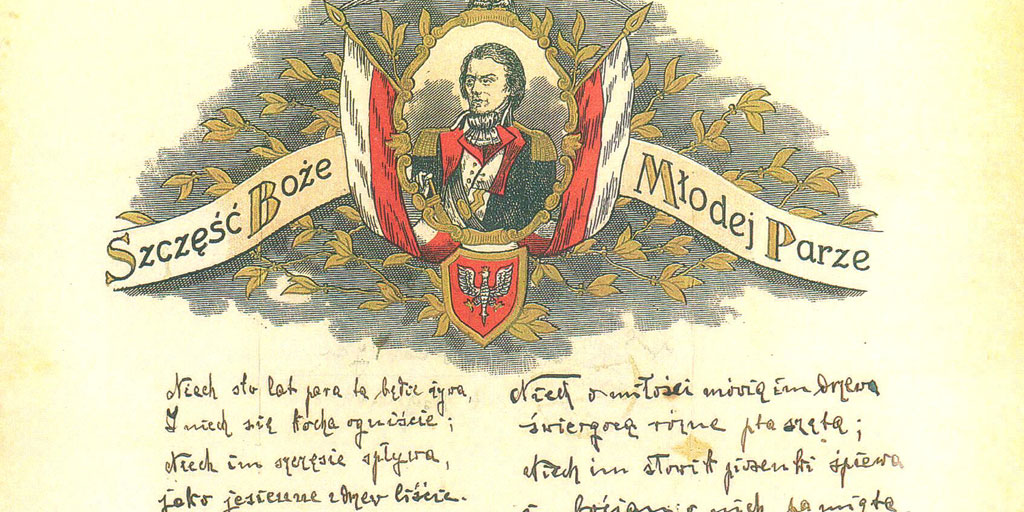 Szczęść Boże Młodej Parze
Niech sto lat para ta będzie żywa,
I niech się kocha ogniście;
Niech im szczęsie spływa,
jako jesienne z drzew liście.
Niech o miłości mówią im drzewa
świergocą różne ptaszęta;
Niech im słowik piosenki śpiewa
i bocian o nich pamięta.